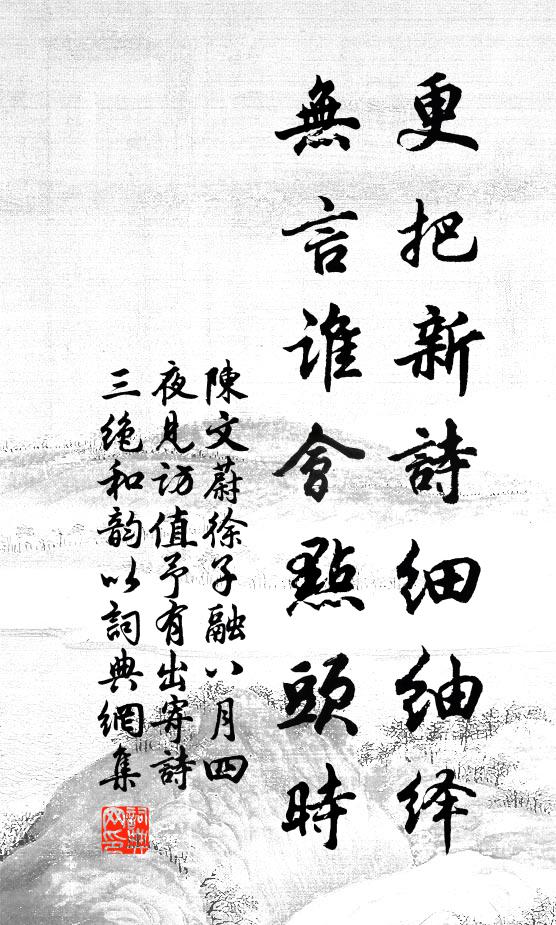 更把新詩細紬绎
無言誰會點頭時
陳文蔚徐子融八月四
夜見访值予有出寄詩
三绝和韵以詞典網集